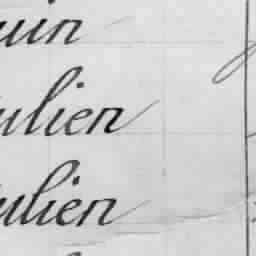 uin
ulien
ulien